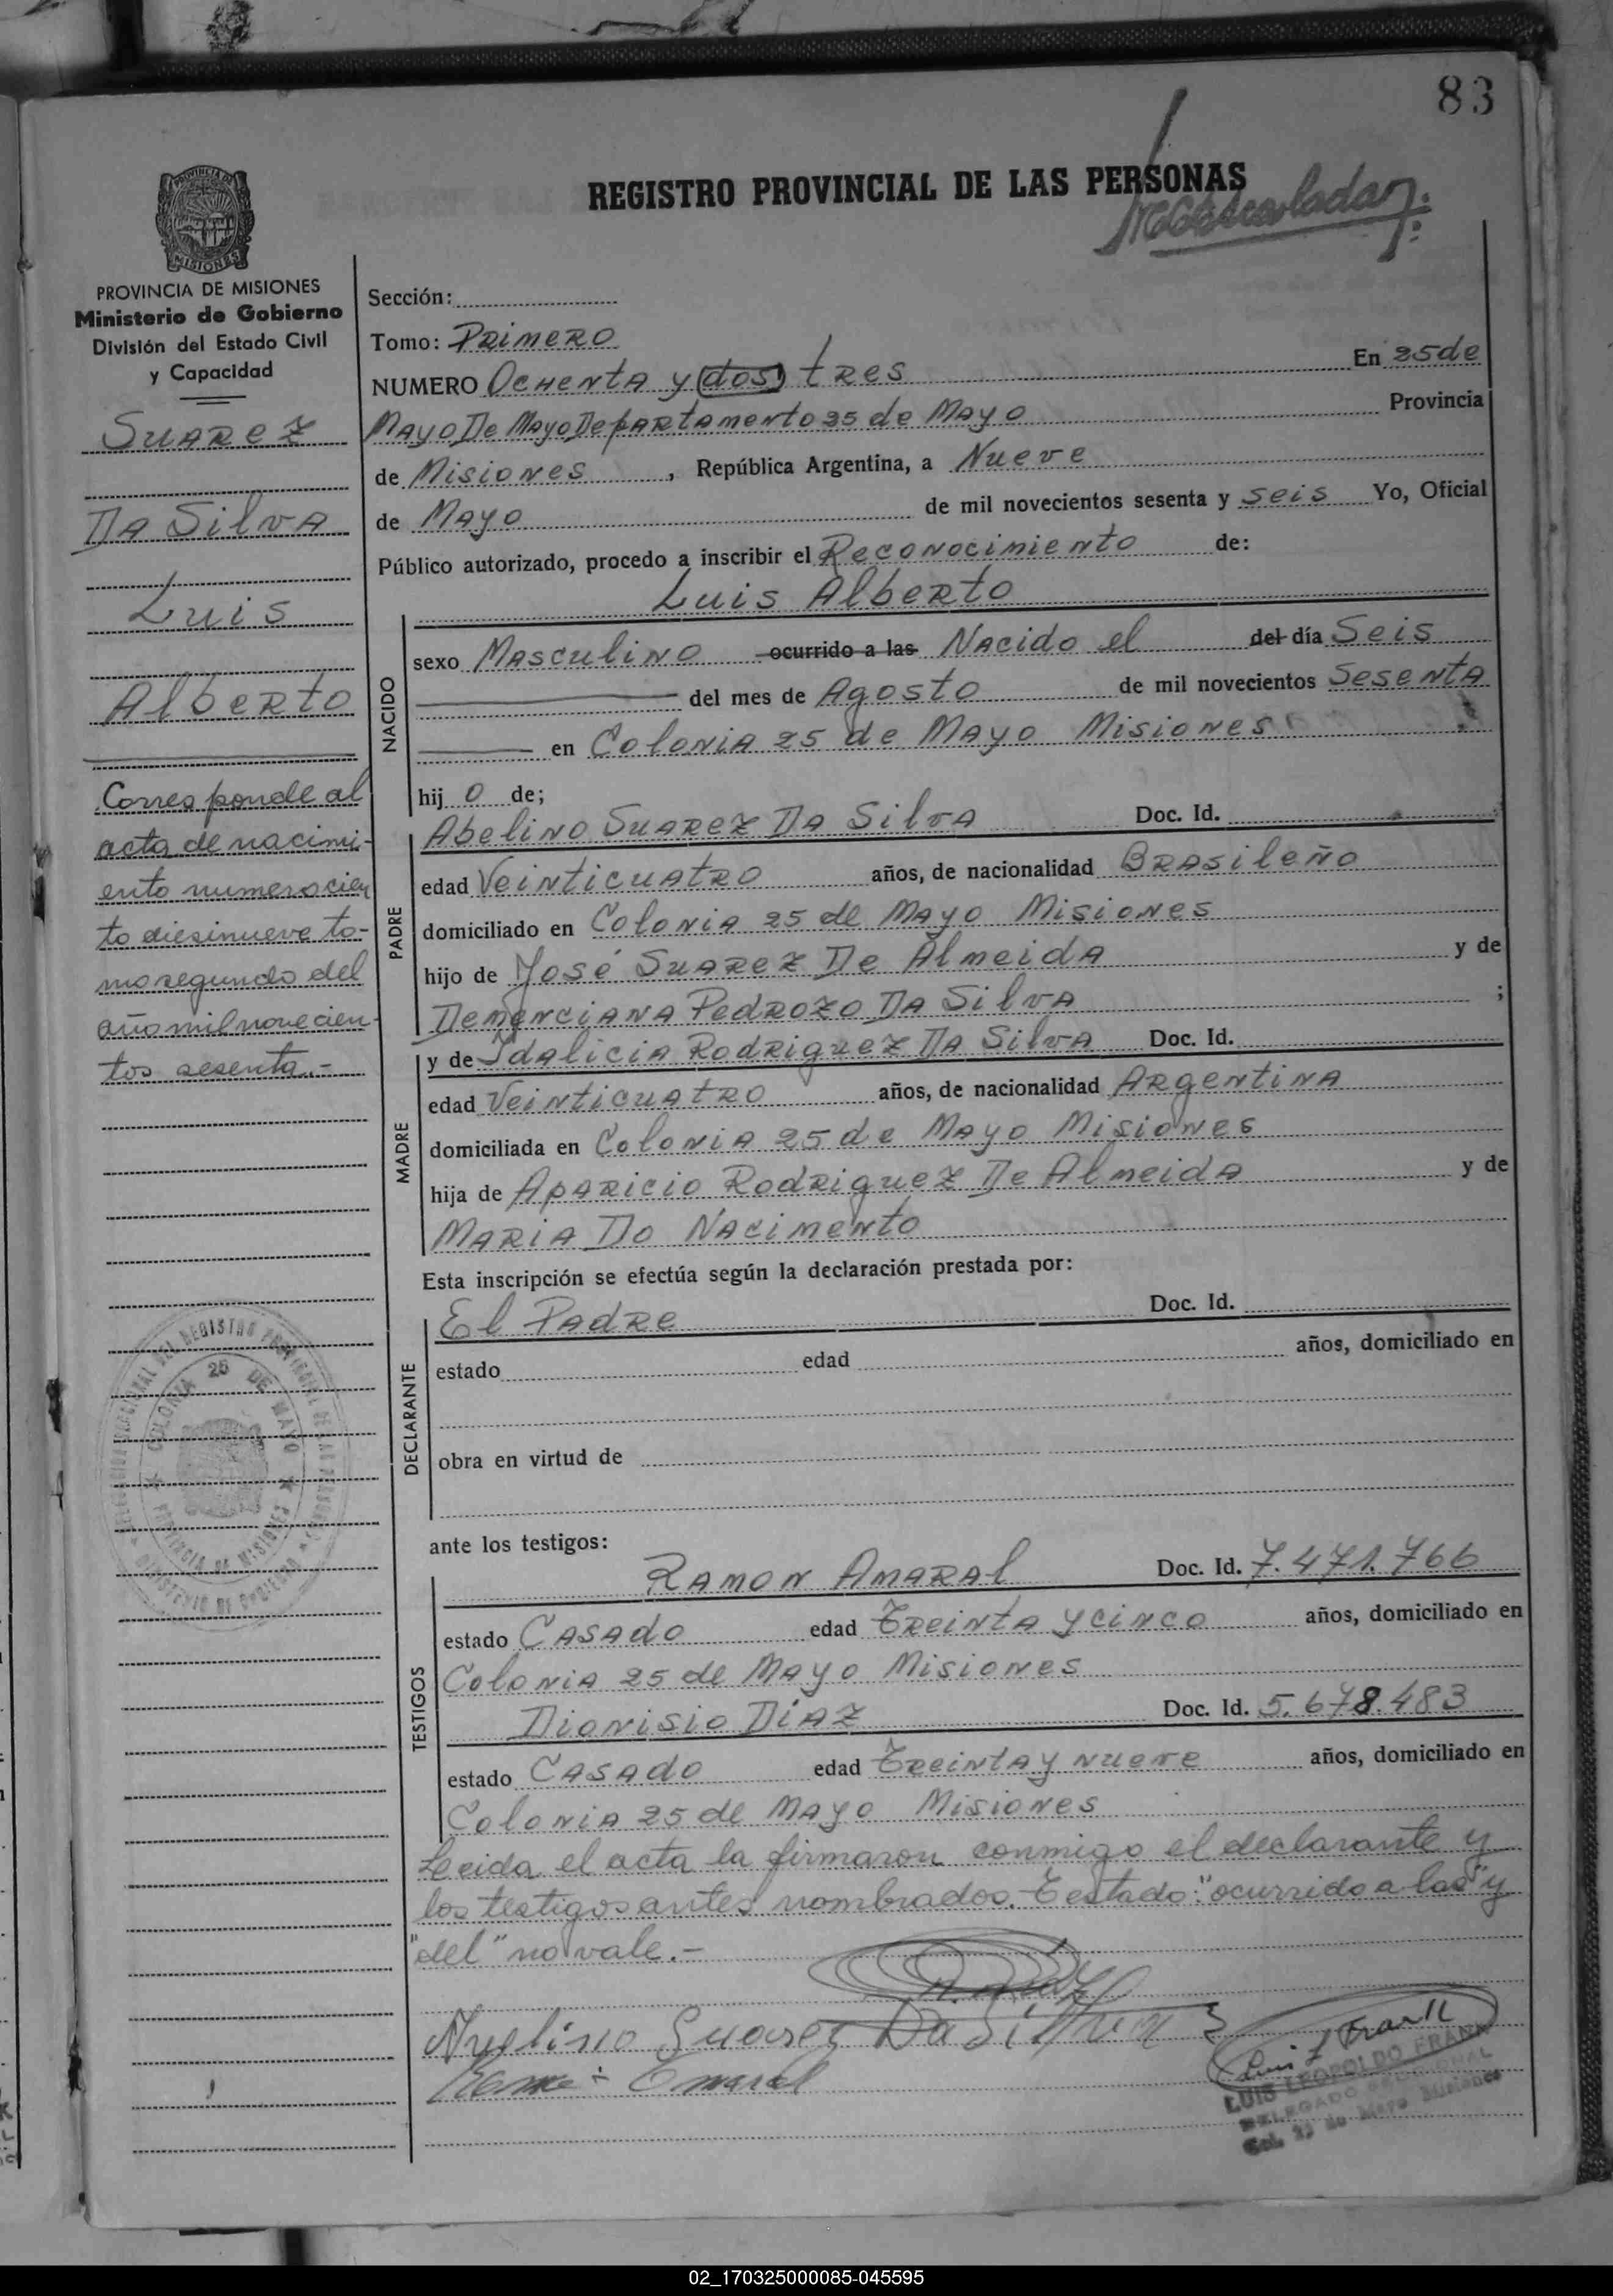 83
REGISTRO PROVINCIAL DE LAS PERSONAS
PROVINCIA DE MISIONES
Ministerio de Gobierno
División del Estado Civil
y Capacidad
SUAREZ
DA SilvA
Luis
AlbeRto
Corresponde al
acta de nacimi-
ento numero cien
to diesinueve to-
mo segundo del
año mil novecien-
tos sesenta.-
Sección:
Tomo: PRimeRO
NUMERO OcHentA y (dos) tRes En 25 de
MAyo De MAyo DepARtAmento 25 de MAyo Provincia
de Misiones, República Argentina, a Nueve
de MAyo de mil novecientos sesenta y seis Yo, Oficial
Público autorizado, procedo a inscribir el Reconocimiento de:
Luis AlbeRto
NACIDO
sexo MAsculino ocurrido a las NAcido el del día Seis
del mes de Agosto de mil novecientos SesentA
en ColoniA 25 de MAyo Misiones
hij o de;
PADRE
Abelino SuARez DA SilvA Doc. Id.
edad VeinticuAtRo años, de nacionalidad BRAsileño
domiciliado en ColoniA 25 de MAyo Misiones
hijo de José SuARez De AlmeidA y de
PedRozo DA SilvA ;
MADRE
y de IdaliciA RodRiguez DA SilvA Doc. Id.
edad VeinticuAtRo años, de nacionalidad ARgentinA
domiciliada en ColoniA 25 de MAyo Misiones
hija de ApARicio RodRiguez De AlmeidA y de
MARiA Do NAcimento
Esta inscripción se efectúa según la declaración prestada por:
DECLARANTE
El PAdRe Doc. Id.
estado edad años, domiciliado en
obra en virtud de
ante los testigos:
TESTIGOS
RAmon AmARAl Doc. Id. 7.471.766
estado CAsAdo edad TReintA y cinco años, domiciliado en
ColoniA 25 de MAyo Misiones
Dionisio DiAz Doc. Id. 5.678.483
estado CAsAdo edad TReintA y nueve años, domiciliado en
ColoniA 25 de MAyo Misiones
Leeida el acta la firmaron conmigo el declarante y
los testigos antes nombrados. Testado: "ocurrido a las" y
"del" no vale.-
Avelino Suarez Da Silva
Luis L Frank
LUIS LEOPOLDO FRANK
DELEGADO SECCIONAL
Col. 25 de Mayo Misiones
COLONIA 25 DE MAYO
PROVINCIA DE MISIONES
02_170325000085-045595